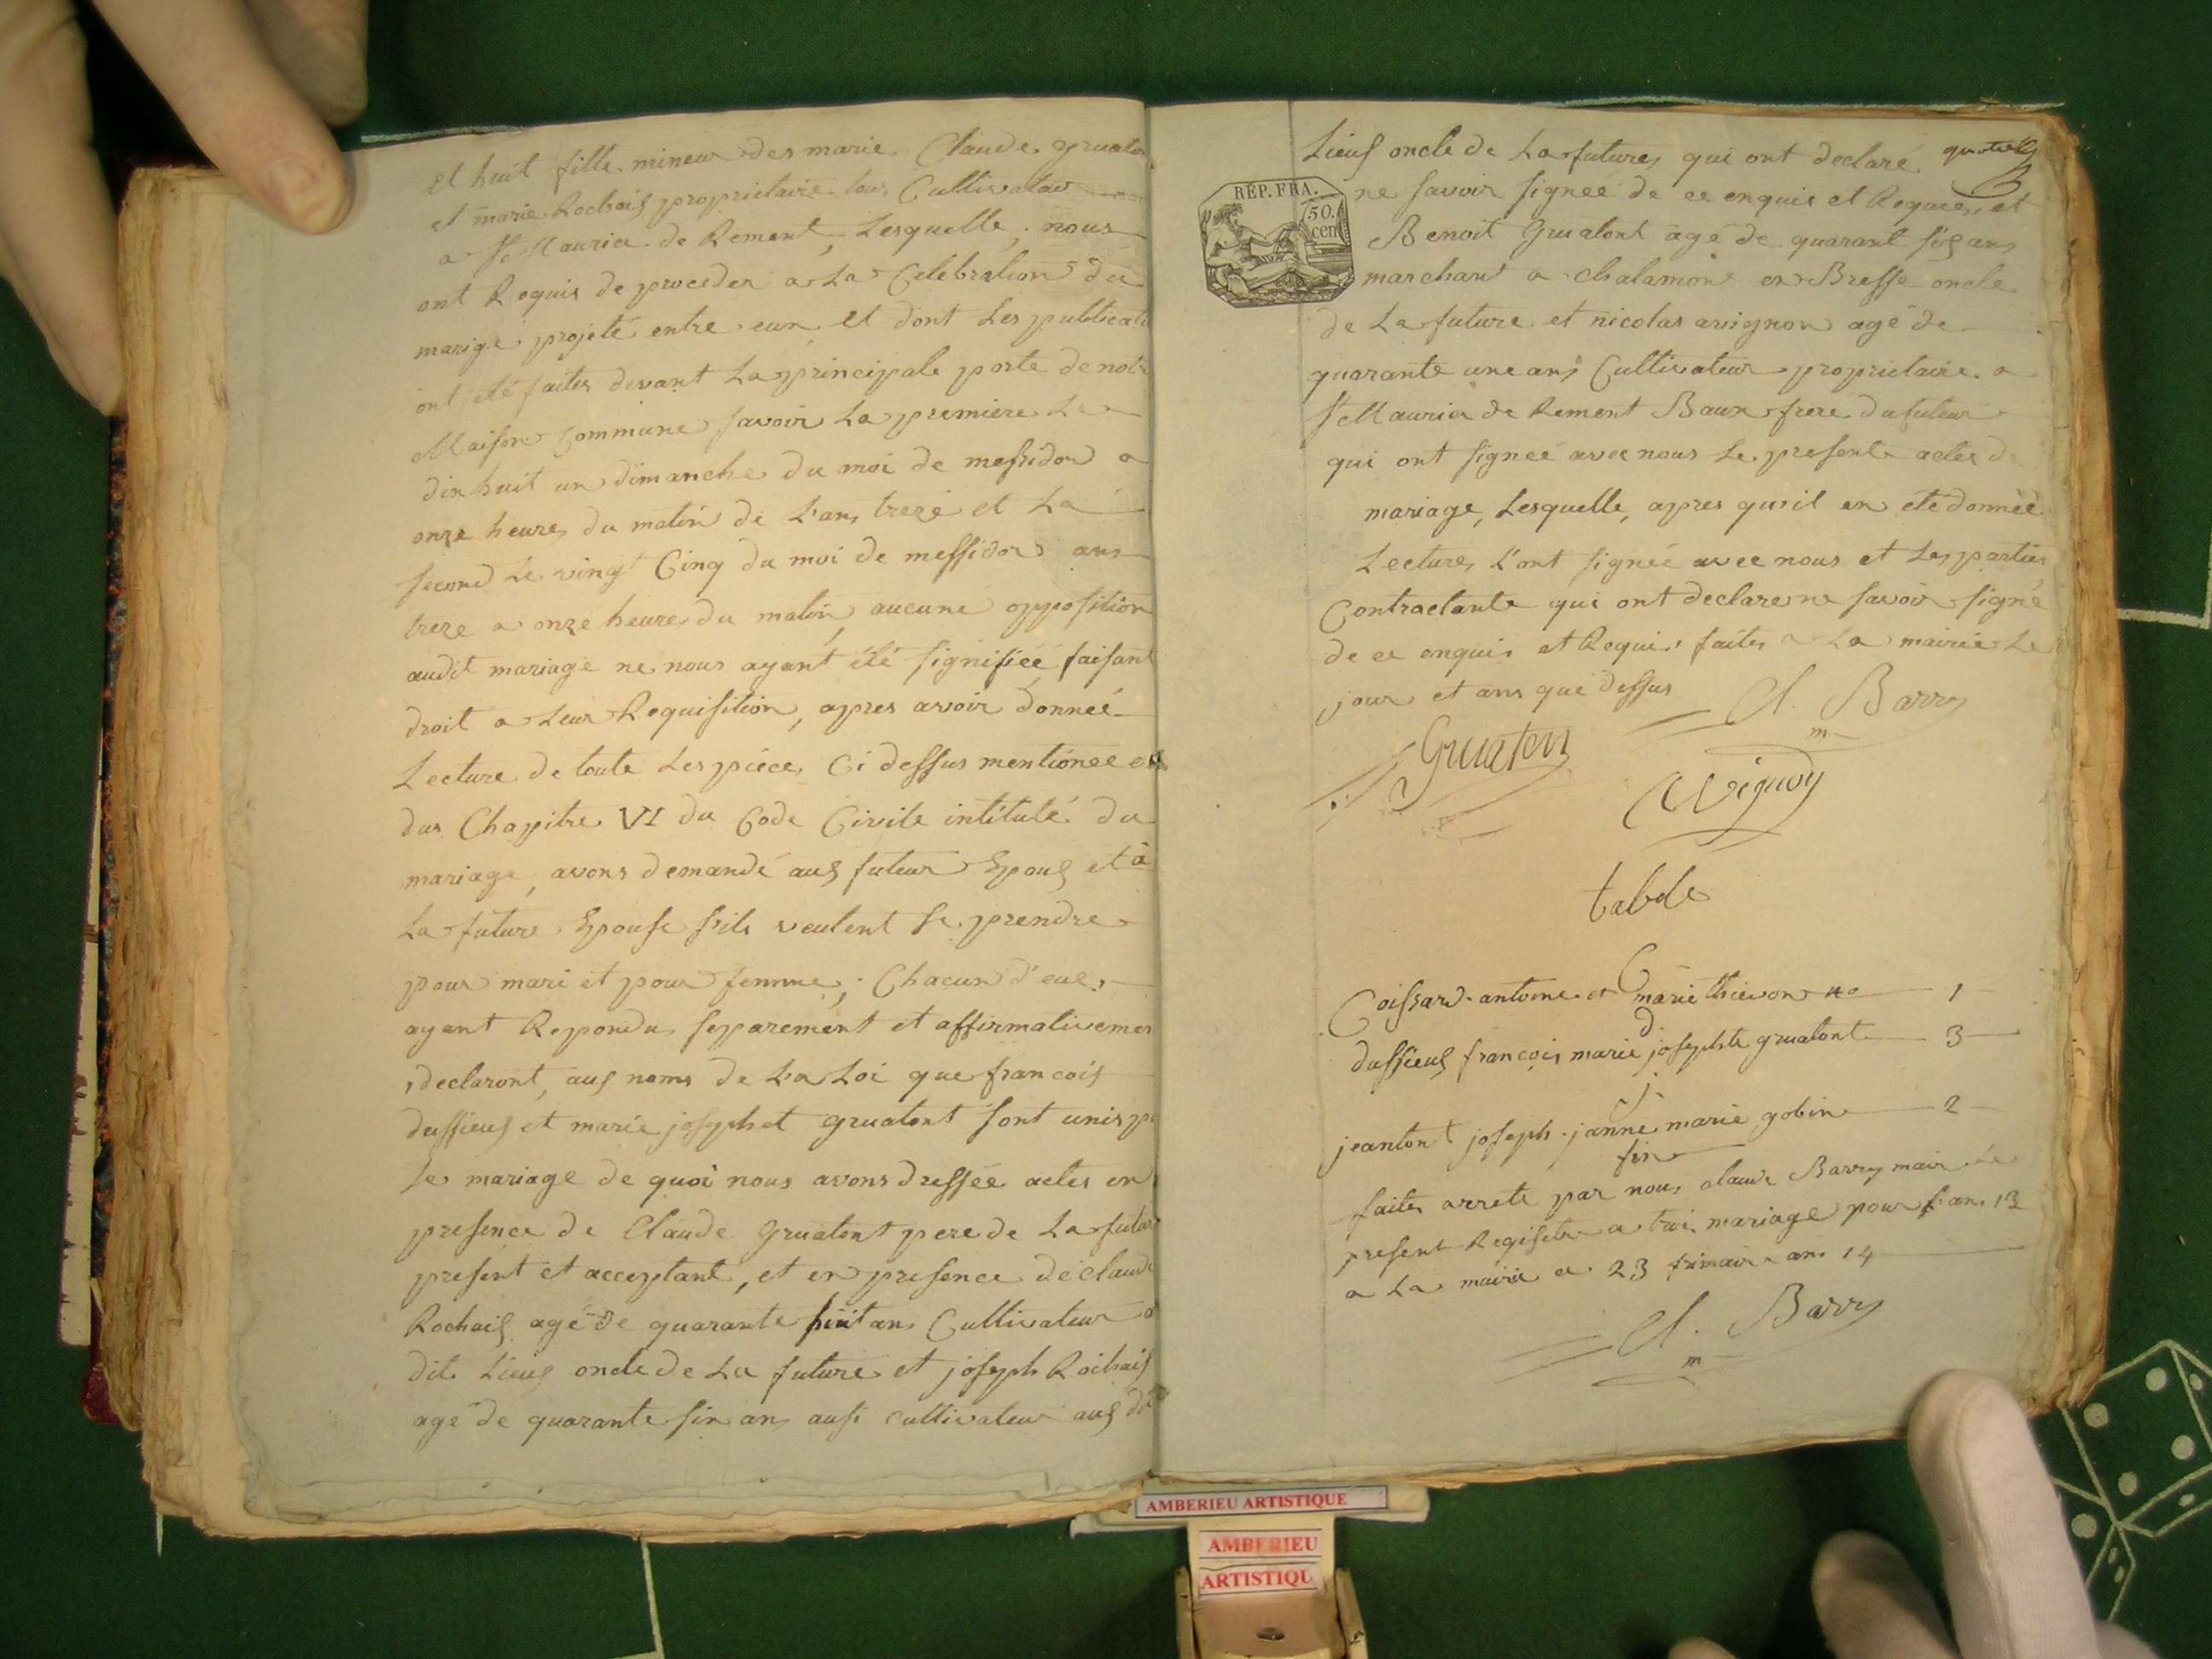 et huit fille mineur des marie Claude gruaton
et marie Rochais proprietaire tous Cultivateur
a St Maurice de Rement, Lesquelle, nous
ont Requis de proceder a La Celebration du
marige projeté entre eux, et dont Les publicati
ont été faites devant La principale porte de notre
Maison Commune savoir La premiere Le
dix huit un dimanche du moi de messidor a
onze heures du matin de L'ans treze et La
second Le vingt Cinq du moi de messidor ans
treze a onze heures du matin, aucune opposition
audit mariage ne nous ayant été signifiéé, faisant
droit a Leur Requisition, apres avoir donneé
Lecture de toute Les piéce, Ci dessus mentionee et
dus Chapitre VI du Code Civile intitulé du
mariage, avons demandé aus futeur Epous et à
La future Epouse s'ils veulent Se prendre
pour mari et pour femme, Chacun d'eus,
ayant Repondu, separement et affirmativemen
declaront, aus noms de La Loi que francois
dussieus et marie josephet gruatont Sont unis p
Le mariage de quoi nous avons dressée actes en
presence de Claude Gruatont pere de La future
present et acceptant, et en presence de Claude
Rochais agé de quarante huit ans Cultivateur a
dit Lieus oncle de La future et joseph Rochais
age de quarante six ans ausi cultivateur aus dit
Lieus oncle de La future, qui ont declaré
ne savoir signeé de ce enquis et Requis, et
RÉP. FRA.
50. cen
Benoit Gruatont àgé de quarant sis ans
marchant a chalamont en Bresse oncle
de La future et nicolas avignon agé de
quarante une ans Cultivateur proprietaire a
St Maurice de Rement Baux frere du futeur
qui ont signeé avec nous Le presente actes de
mariage, Lesquelle, apres qu'il en été donnéé
Lecture, L'ont signéé avec nous et Les parties
Contractante qui ont declare ne savoir signé
de ce enquis et Requis, faites a La mairie Le
jour et ans que dessus
Cl. Barry
m
Gruaton
Avignon
table
C
Coissard antoine et marie thievon no 1
d
dussieus françois marie josephte gruatont 3
j
jeantont joseph janne marie gobin 2
fin
faites arrete par nous claude Barry mair Le
present Registre a troi mariage pour l'an 13
a La mairie ce 23 frimaire an 14
Cl. Barry
m
AMBERIEU ARTISTIQUE
AMBERIEU
ARTISTIQU